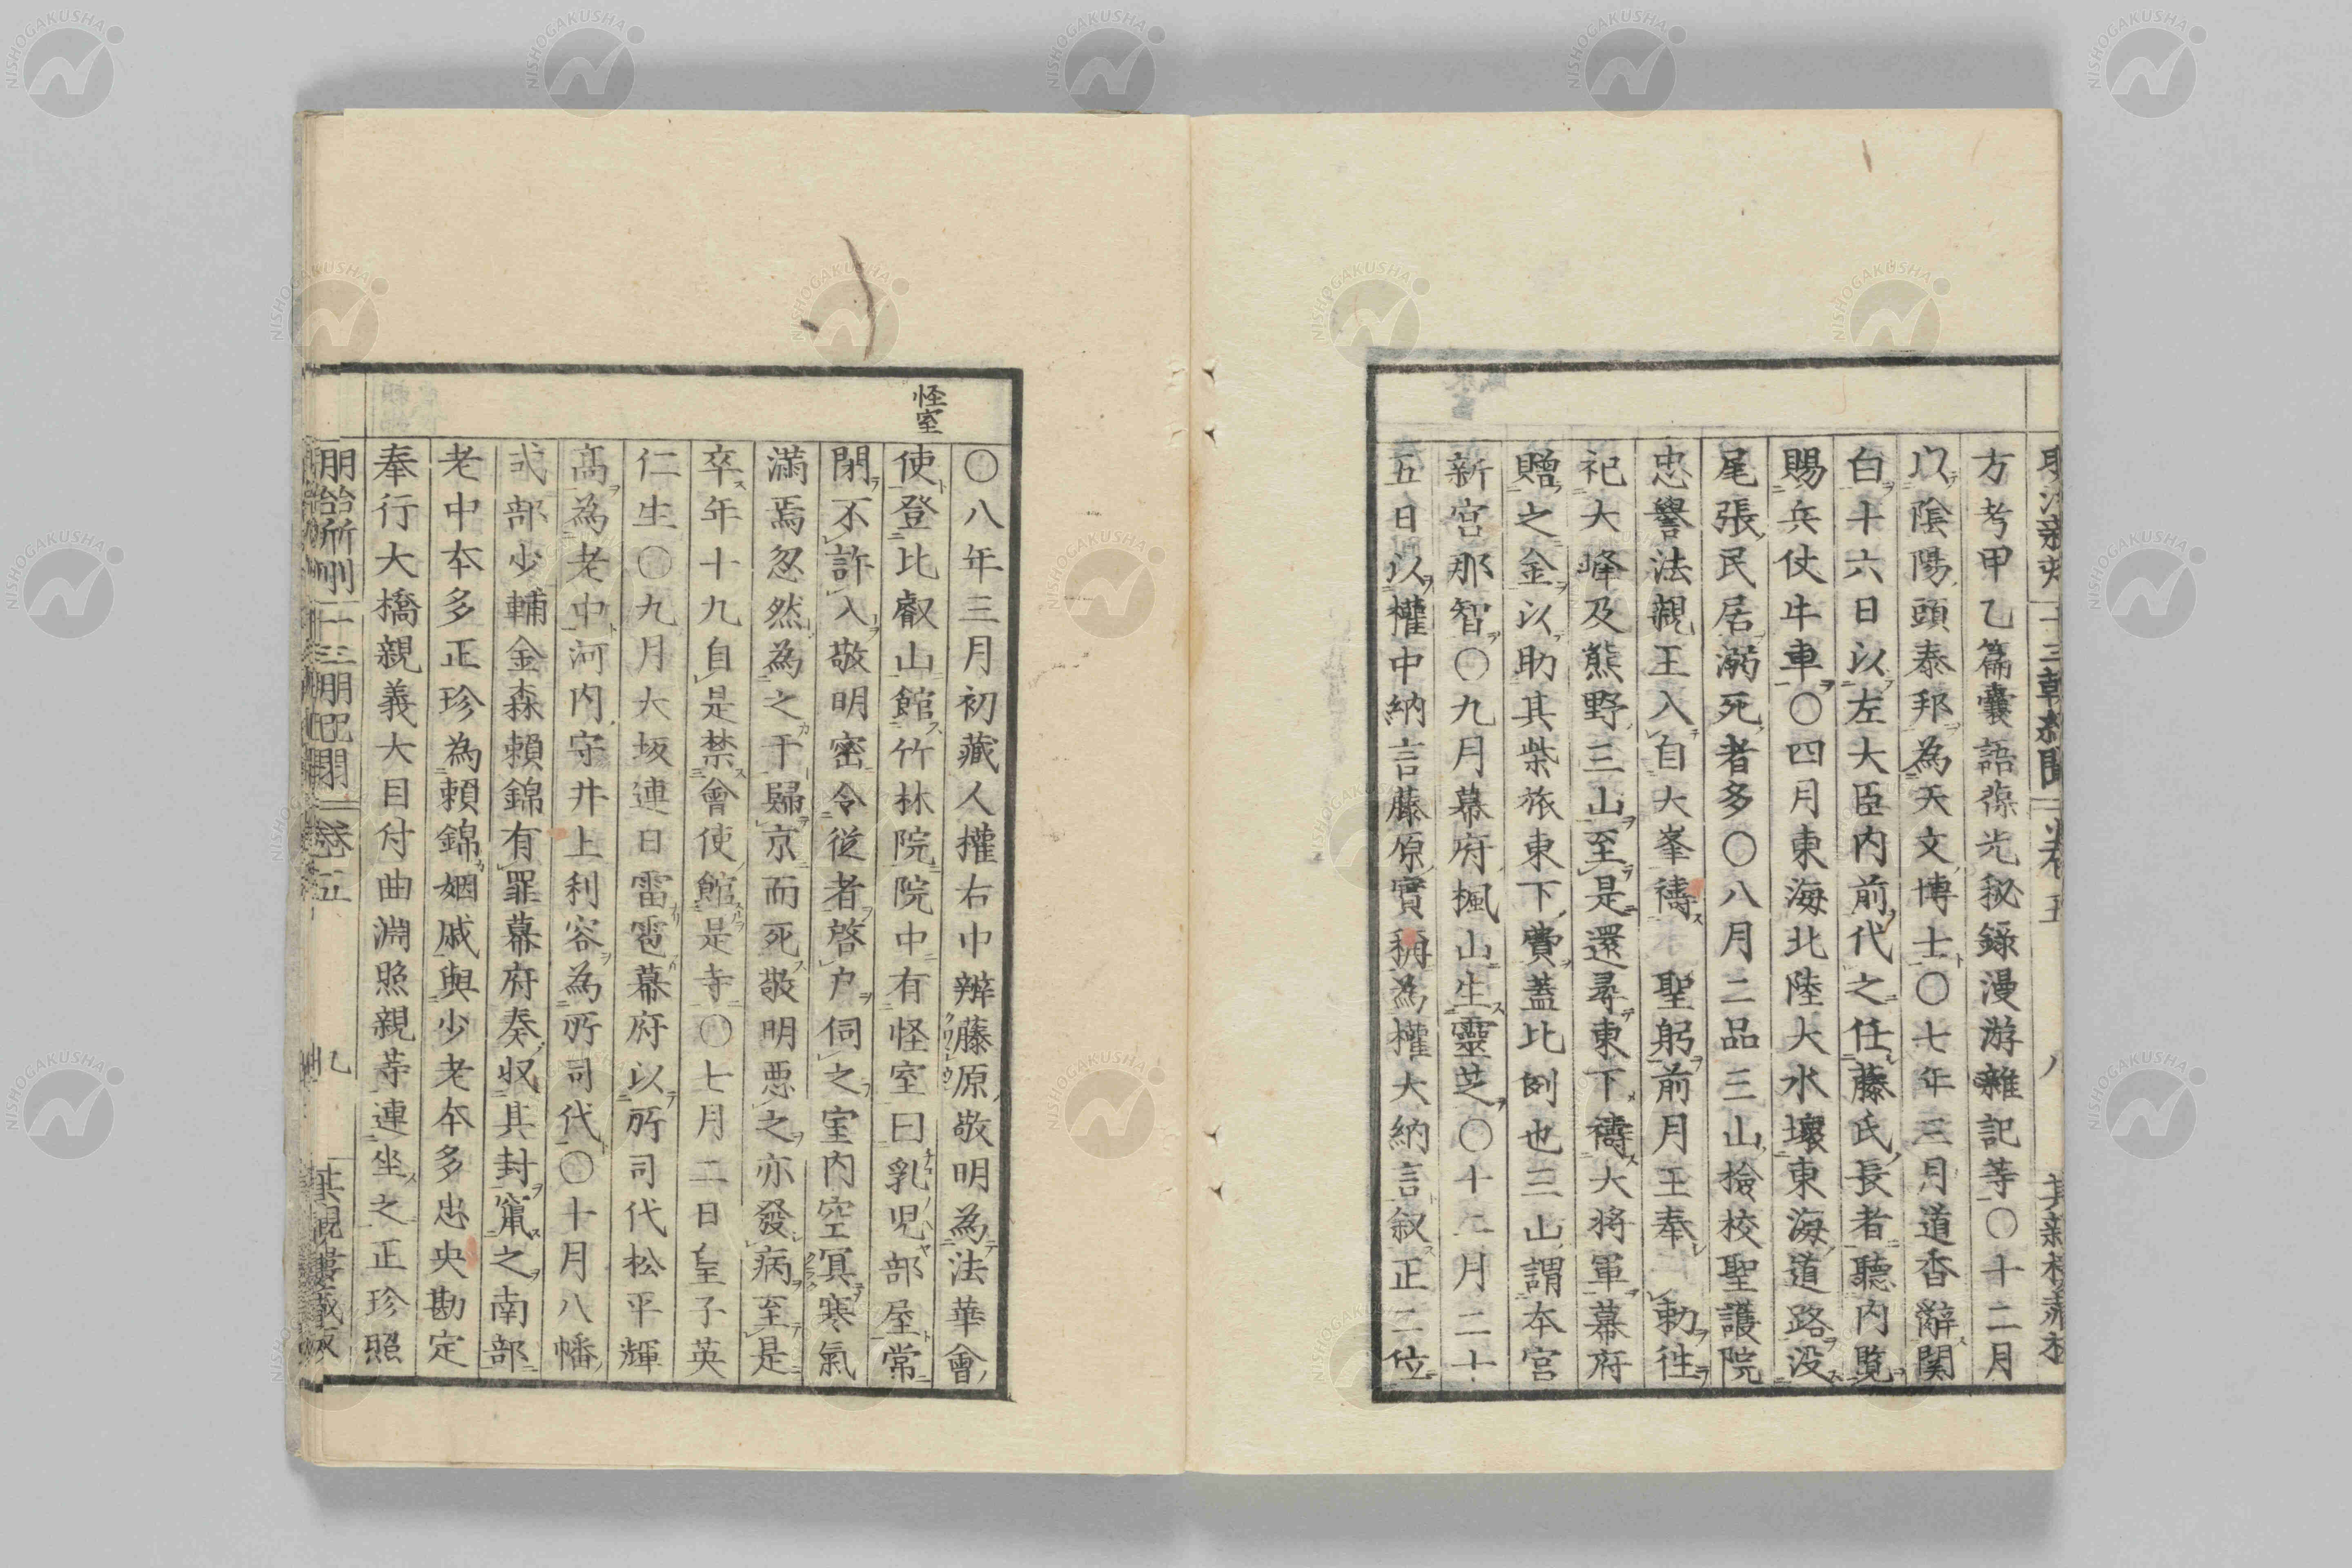 方考甲乙篇嚢語葆光秘録漫游雜記等〇十二月
以陰陽頭泰邦為天文博士〇七年三月道香辭関
白十六日以左大臣内前代之任藤氏長者聽内覧
賜兵仗牛車〇四月東海北陸大水壞東海道路没
尾張民居溺死者多〇八月二品三山撿校聖護院
忠譽法親王入自大峯禱 聖躬前月王奉 勅往
祀大峰及熊野三山至是還尋東下禱大将軍幕府
贈之金以助其柴旅東下費蓋比例也三山謂本宮
新宮那智〇九月幕府楓山生靈芝〇十二月二十
五日以權中納言藤原實稱為權大納言叙正二位
怪室
〇八年三月初藏人權右中辨藤原敬明為法華會
使登比叡山館竹林院院中有怪室曰乳児部屋常
閉不許入敬明密令従者啓户伺之室内空冥寒氣
滿焉忽然為之干歸京而死敬明悪之亦發病至是
卒年十九自是禁會使館是寺〇七月二日皇子英
仁生〇九月大坂連日雷雹幕府以所司代松平輝
高為老中河内守井上利容為所司代〇十月八幡
式部少輔金森頼錦有罪幕府奏収其封竄之南部
老中本多正珍為頼錦姻戚與少老本多忠央勘定
奉行大橋親義大目付曲淵照親等連坐之正珍照
卷五
九